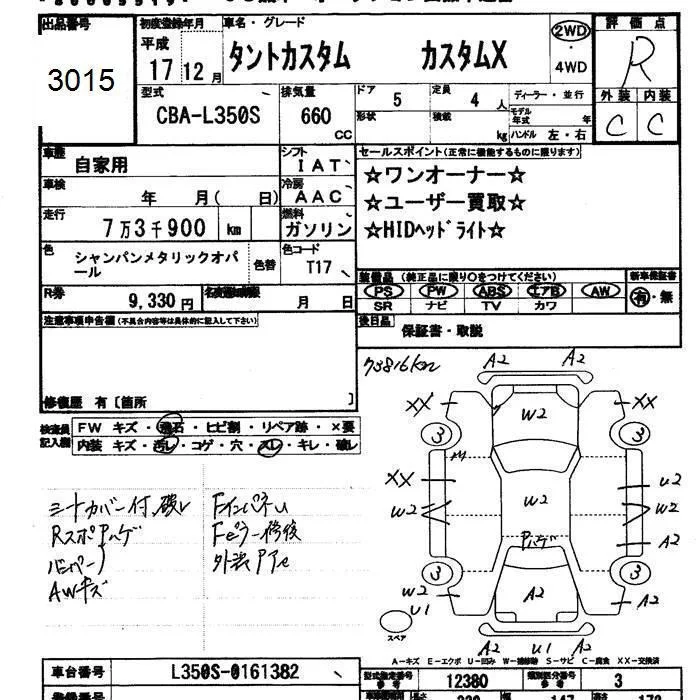 出品番号
3015
初度登録年月
平成
17 12 月
車名・グレード
タントカスタム カスタムX
2WD
4WD
評価点
R
外装 内装
C C
型式
CBA-L350S
排気量
660 CC
ドア 5
定員 4 人
形状
積載 kg
ディーラー・並行
モデル年式 年
ハンドル 左・右
車歴
自家用
シフト
IAT
車検
年 月( 日)
冷房
AAC
走行
7万3千900 km
燃料
ガソリン
色
シャンパンメタリックオパール
色替
色コード
T17
R券
9,330円
月 日
セールスポイント(正常に機能するものに限ります)
☆ワンオーナー☆
☆ユーザー買取☆
☆HIDヘッドライト☆
装備品 (純正品に限り○をつけてください)
PS PW ABS エアB AW
SR ナビ TV カワ
新車保証書
有・無
後日品
保証書・取説
注意事項申告欄(不具合内容等は具体的に記入して下さい)
修復歴 有〔箇所 〕
検査員記入欄
FW キズ・飛石・ヒビ割・リペア跡・×要
内装 キズ・汚レ・コゲ・穴・スレ・キレ・破レ
シートカバー付.破レ
RスポPハゲ
バンパーﾉ
AWキズ
FインパネU
Fピラー修後
73816km
A2 A2
XX XX
W2
3 3
XX
W2 W2 W2
U2
Pハゲ
A2
3 3
W2
U1
A2
A2
スペア
A2 U1 A2
A-キズ E-エクボ U-凹み W-補修跡 S-サビ C-腐食 XX-交換済
車台番号
L350S-0161382
型式指定番号
参考
12380
類別区分番号
参考
3